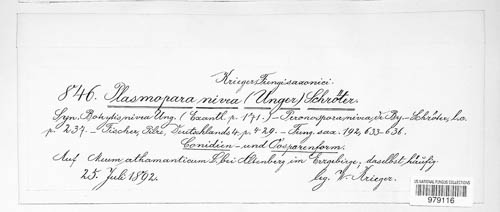 Kriegers Fungi saxonici.
846. Plasmopara nivea (Unger) Schröter.
Syn. Botrytis nivea Ung. (Exanth. p. 171.) - Peronospora nivea, de By. - Schröter, l. c.
p. 237. - Fischer, Pilze, Deutschlands 4. p. 429. - Fung. sax. 192, 633-636.
Conidien- und Oosporenform.
Auf Meum athamanticum L. bei Altenberg im Erzgebirge; daselbst häufig
25. Juli 1892. leg. W. Krieger.
US NATIONAL FUNGUS COLLECTIONS
979116